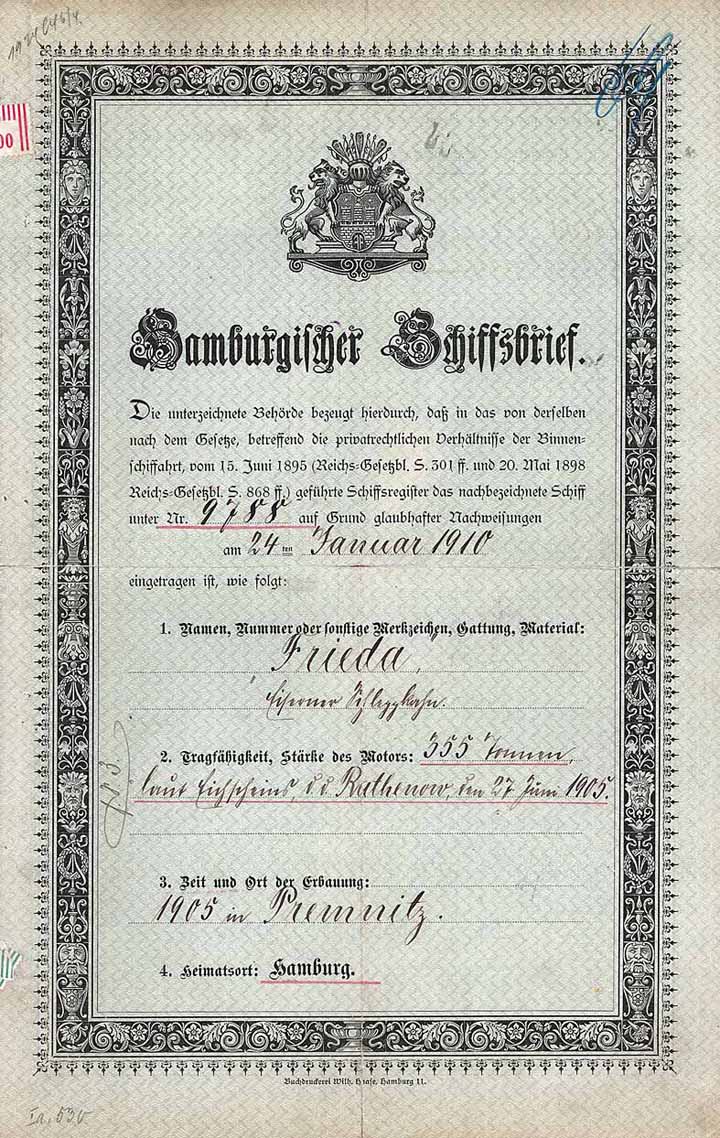 00
Hamburgischer Schiffsbrief.
Die unterzeichnete Behörde bezeugt hierdurch, daß in das von derselben
nach dem Gesetze, betreffend die privatrechtlichen Verhältnisse der Binnen-
schiffahrt, vom 15. Juni 1895 (Reichs-Gesetzbl. S. 301 ff. und 20. Mai 1898
Reichs-Gesetzbl. S. 868 ff.) geführte Schiffsregister das nachbezeichnete Schiff
unter Nr. 9788 auf Grund glaubhafter Nachweisungen
am 24 ten Januar 1910
eingetragen ist, wie folgt:
1. Namen, Nummer oder sonstige Merkzeichen, Gattung, Material:
Frieda,
Eiserner Schleppkahn.
2. Tragfähigkeit, Stärke des Motors: 355 Tonnen,
laut Eichscheins, d.d. Rathenow, den 27 Juni 1905.
3. Zeit und Ort der Erbauung:
1905 in Premnitz.
4. Heimatsort: Hamburg.
Buchdruckerei Wilh. Hasse, Hamburg 11.
Ia. 530